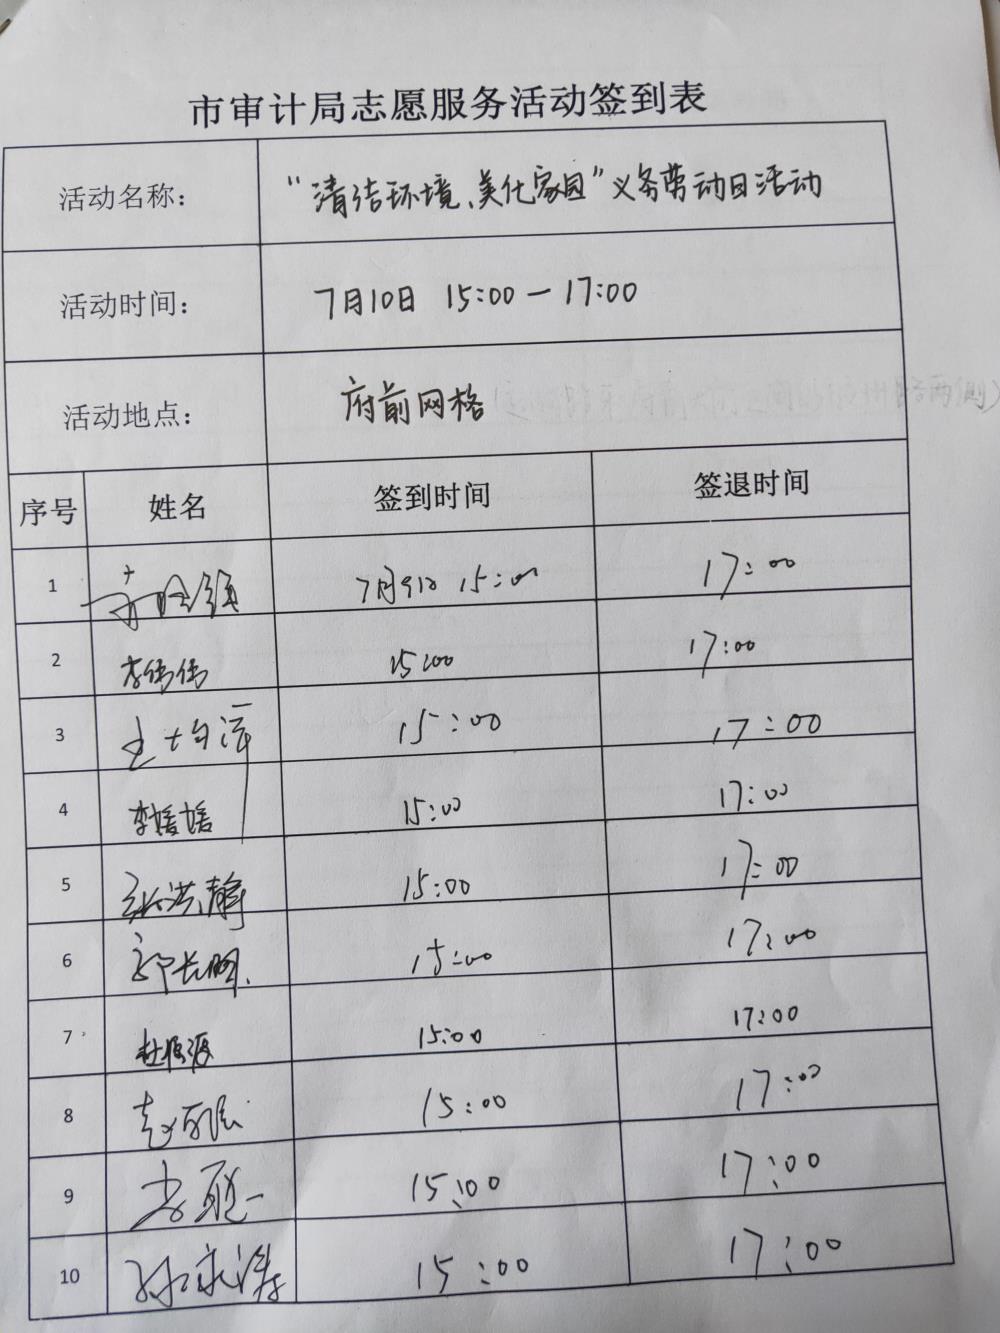 市审计局志愿服务活动签到表
活动名称： “清洁环境、美化家园”义务劳动日活动
活动时间： 7月10日 15:00—17:00
活动地点： 府前网格
序号 姓名 签到时间 签退时间
1 15:00 17:00
2 李伟伟 15:00 17:00
3 15:00 17:00
4 李媛媛 15:00 17:00
5 张洪静 15:00 17:00
6 15:00 17:00
7 15:00 17:00
8 15:00 17:00
9 15:00 17:00
10 孙永涛 15:00 17:00